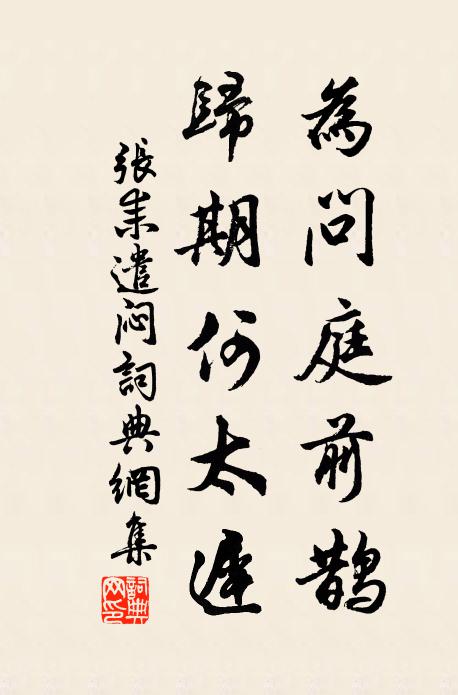 為問庭前鵲
歸期何太遲
張耒遣悶詞典網集
詞典
网印